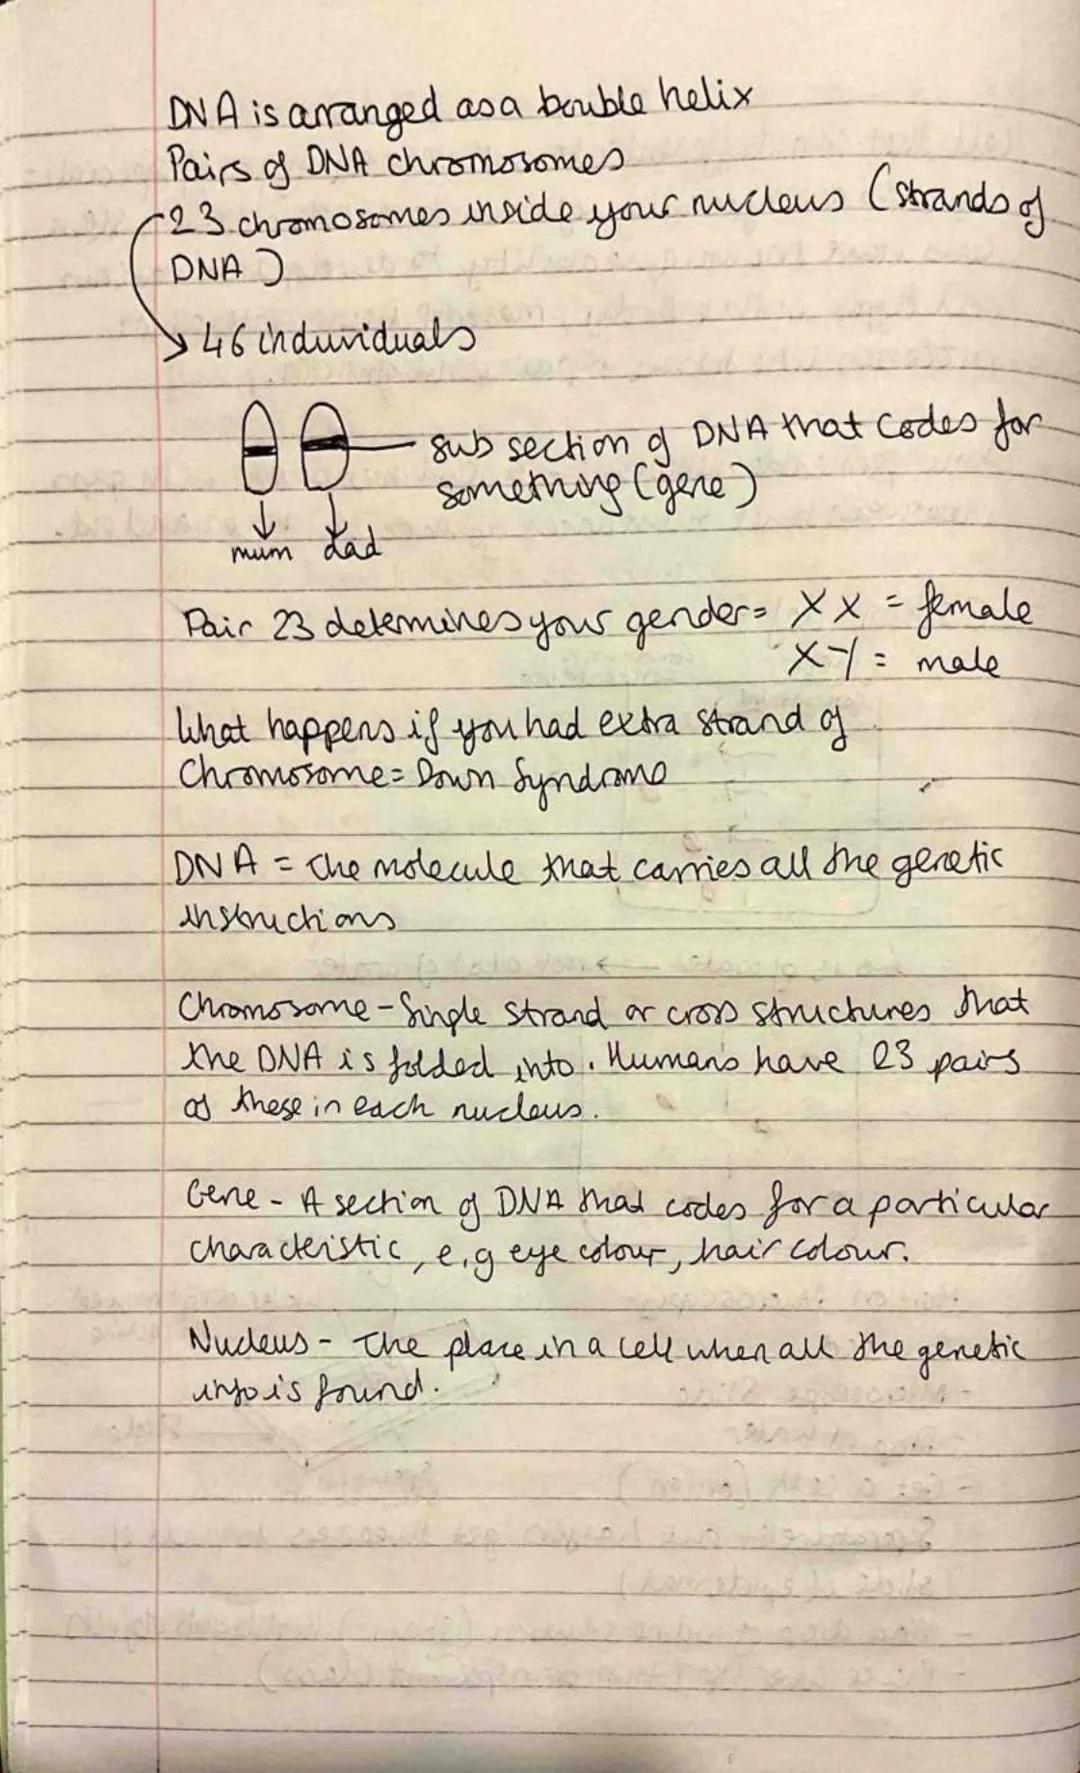 DNA is arranged as a bouble helix
Pairs of DNA chromosomes
23 chromosomes inside your nucleus (strands of
DNA)
46 individuals
sub section of DNA that codes for
something (gene)
mum dad
Pair 23 determines your gender = XX = female
XY = male
What happens if you had extra strand of
Chromosome = Down Syndrome
DNA = The molecule that carries all the genetic
instructions
Chromosome - Single strand or cross structures that
the DNA is folded into. Humans have 23 pairs
of these in each nucleus.
Gene - A section of DNA that codes for a particular
characteristic, e.g eye colour, hair colour.
Nucleus - The place in a cell when all the genetic
info is found.